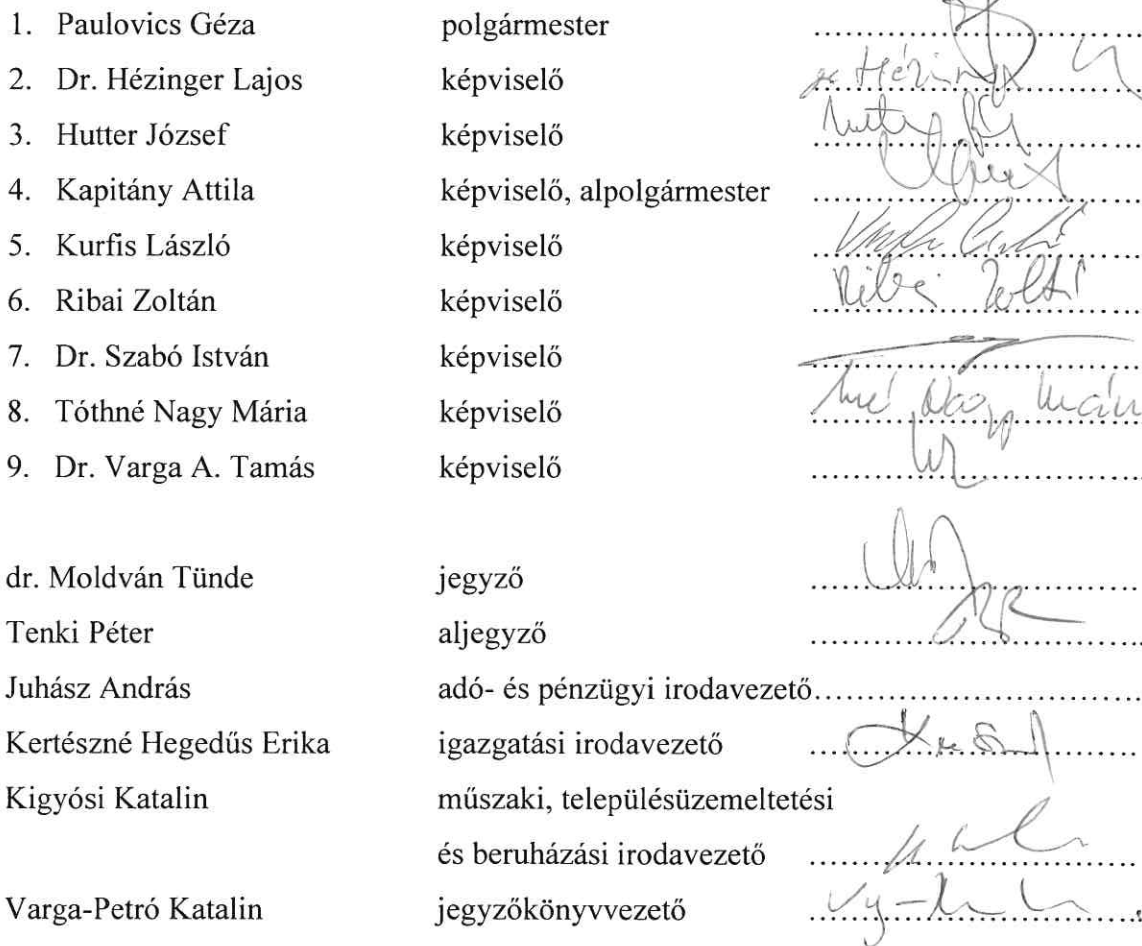 1. Paulovics Géza polgármester ........................
2. Dr. Hézinger Lajos képviselő ........................
3. Hutter József képviselő ........................
4. Kapitány Attila képviselő, alpolgármester ........................
5. Kurfis László képviselő ........................
6. Ribai Zoltán képviselő ........................
7. Dr. Szabó István képviselő ........................
8. Tóthné Nagy Mária képviselő ........................
9. Dr. Varga A. Tamás képviselő ........................
dr. Moldván Tünde jegyző ........................
Tenki Péter aljegyző ........................
Juhász András adó- és pénzügyi irodavezető........................
Kertészné Hegedűs Erika igazgatási irodavezető ........................
Kigyósi Katalin műszaki, településüzemeltetési
és beruházási irodavezető ........................
Varga-Petró Katalin jegyzőkönyvvezető ........................